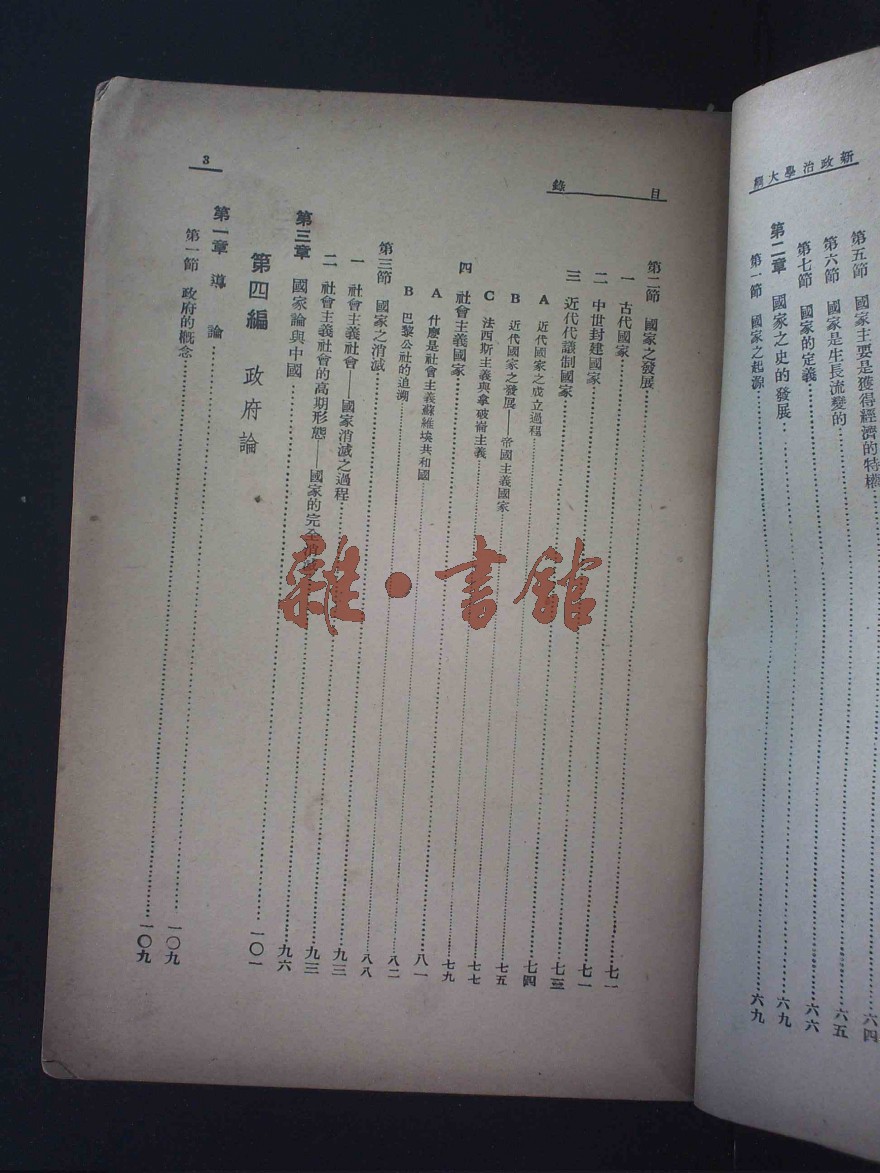 新政治學大綱
第五節 國家主要是獲得經濟的特權
第六節 國家是生長流變的……六四
第七節 國家的定義……六五
第二章 國家之史的發展……六六
第一節 國家之起源……六九
六九
目錄
3
第二節 國家之發展……七一
一 古代國家……七一
二 中世封建國家……七三
三 近代代議制國家……七四
A 近代國家之成立過程……七五
B 近代國家之發展——帝國主義國家……七七
C 法西斯主義與拿破崙主義……七九
四 社會主義國家……八一
A 什麼是社會主義蘇維埃共和國……八二
B 巴黎公社的追溯……八八
第三節 國家之消滅……九三
一 社會主義社會——國家消滅之過程……九三
二 社會主義社會的高期形態——國家的完全消滅……九六
第三章 國家論與中國……一〇一
第四編 政府論
第一章 導論……一〇九
第一節 政府的概念……一〇九
雜·書館